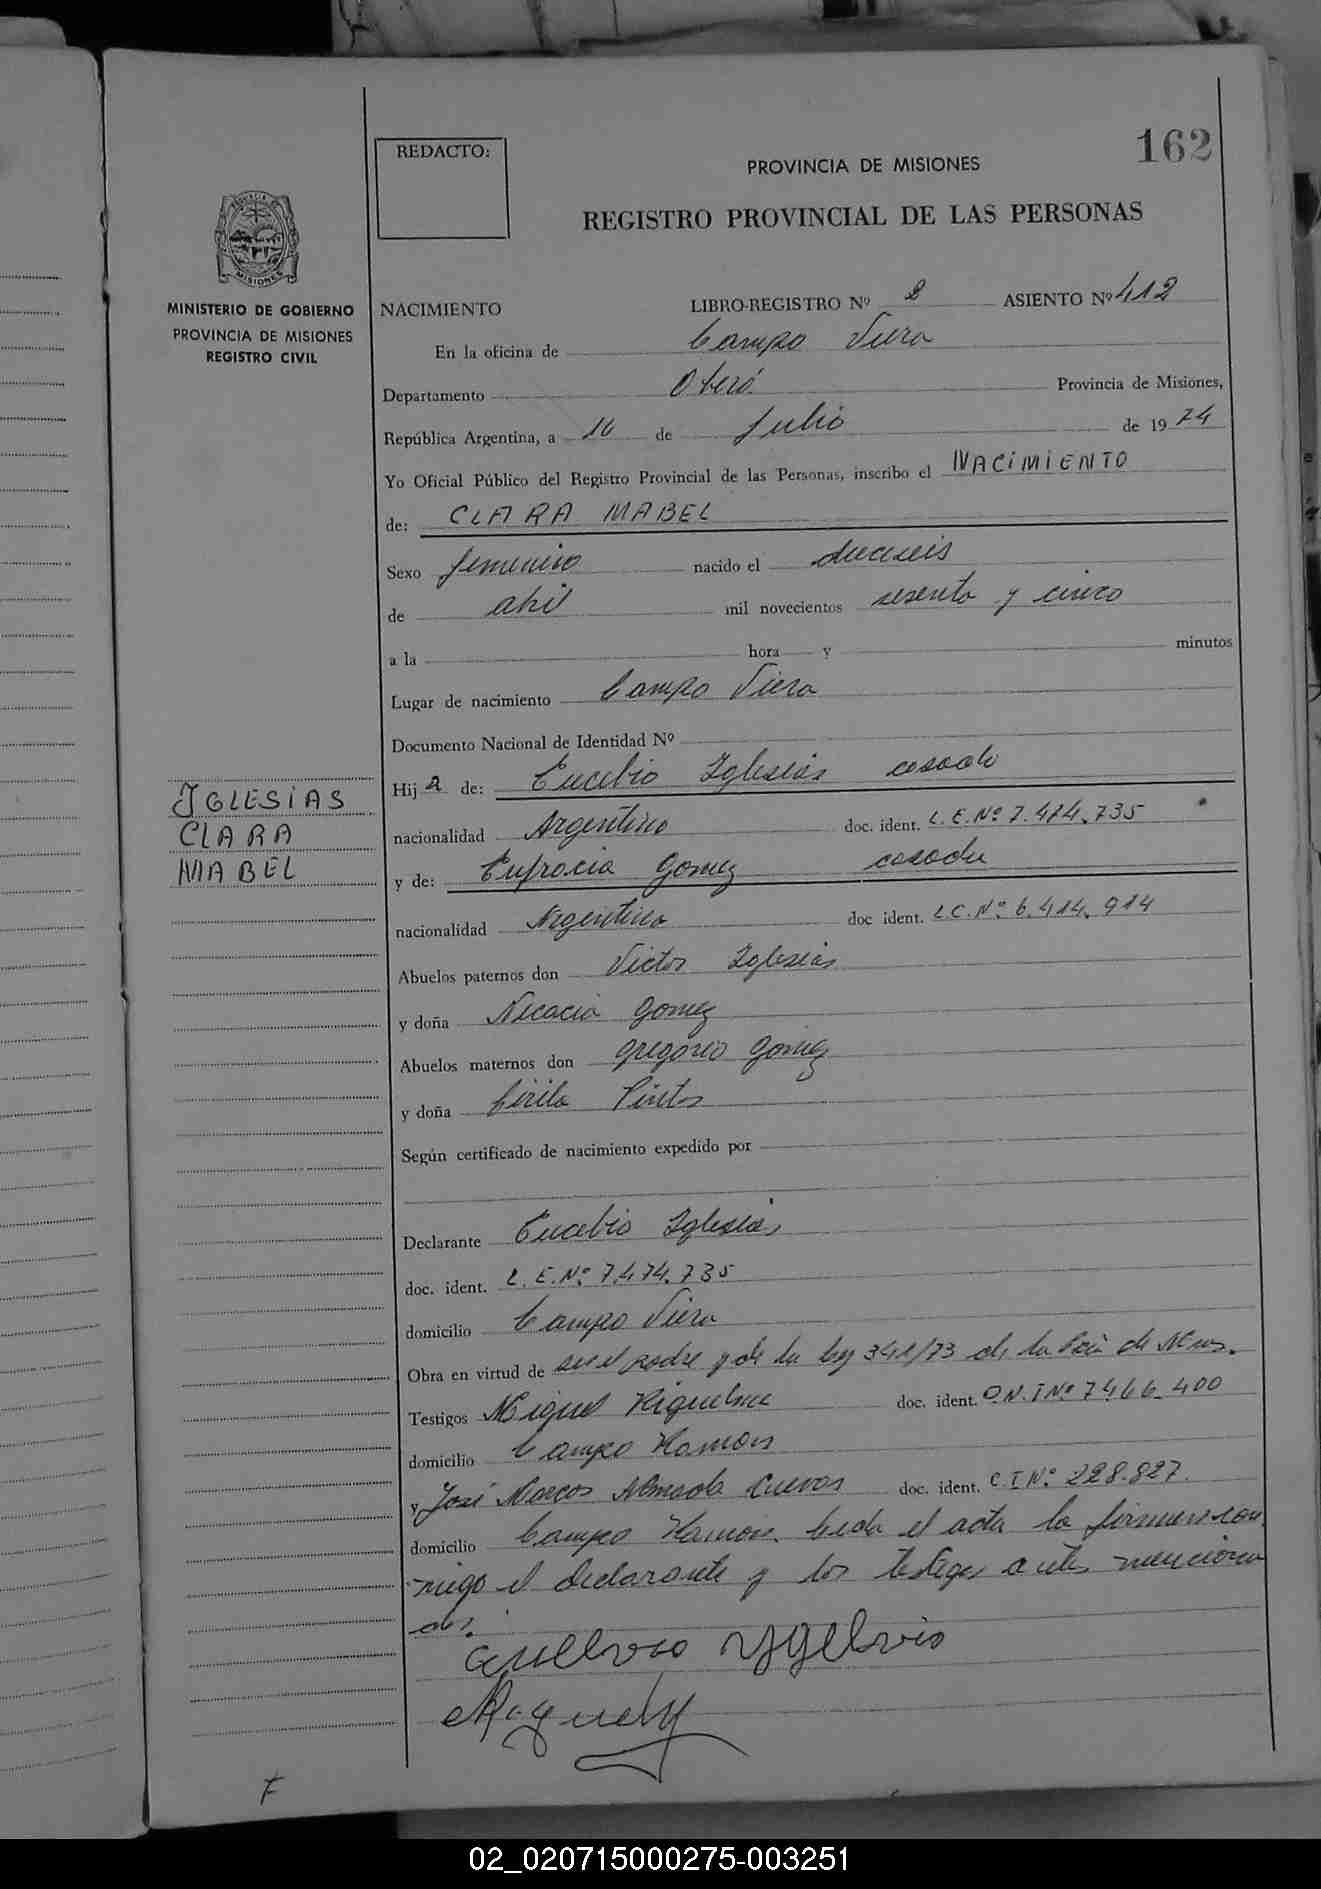 162
REDACTO:
PROVINCIA DE MISIONES
REGISTRO PROVINCIAL DE LAS PERSONAS
MISIONES
MINISTERIO DE GOBIERNO
PROVINCIA DE MISIONES
REGISTRO CIVIL
NACIMIENTO LIBRO-REGISTRO Nº 2 ASIENTO Nº 412
En la oficina de Campo Viera
Departamento Oberá Provincia de Misiones,
República Argentina, a 16 de Julio de 1974
Yo Oficial Público del Registro Provincial de las Personas, inscribo el NACIMIENTO
de: CLARA MABEL
Sexo femenino nacido el dieciseis
de abril mil novecientos sesenta y cinco
a la hora y minutos
Lugar de nacimiento Campo Viera
Documento Nacional de Identidad Nº
Hij a de: Eucebio Iglesias casado
IGLESIAS
CLARA
MABEL
nacionalidad Argentino doc. ident. L.E.Nº 7.474.735
y de: Eufrocia Gomez casada
nacionalidad Argentina doc ident. L.C.Nº 6.414.914
Abuelos paternos don Victor Iglesias
y doña Gomez
Abuelos maternos don Gregorio Gomez
y doña Cirila Pintos
Según certificado de nacimiento expedido por
Declarante Eucebio Iglesias
doc. ident. L.E.Nº 7.474.735
domicilio Campo Viera
Obra en virtud de ser el padre y de la ley 341/73 de la Pcia de Mnes.
Testigos Miguel Riquelme doc. ident. D.N.I Nº 7466.400
domicilio Campo Ramon
y José Marcos Almada Cuevas doc. ident. C.I Nº 228.827.
domicilio Campo Ramon. Leida el acta la firman con
migo el declarante y los testigos antes menciona
dos.
F
02_020715000275-003251